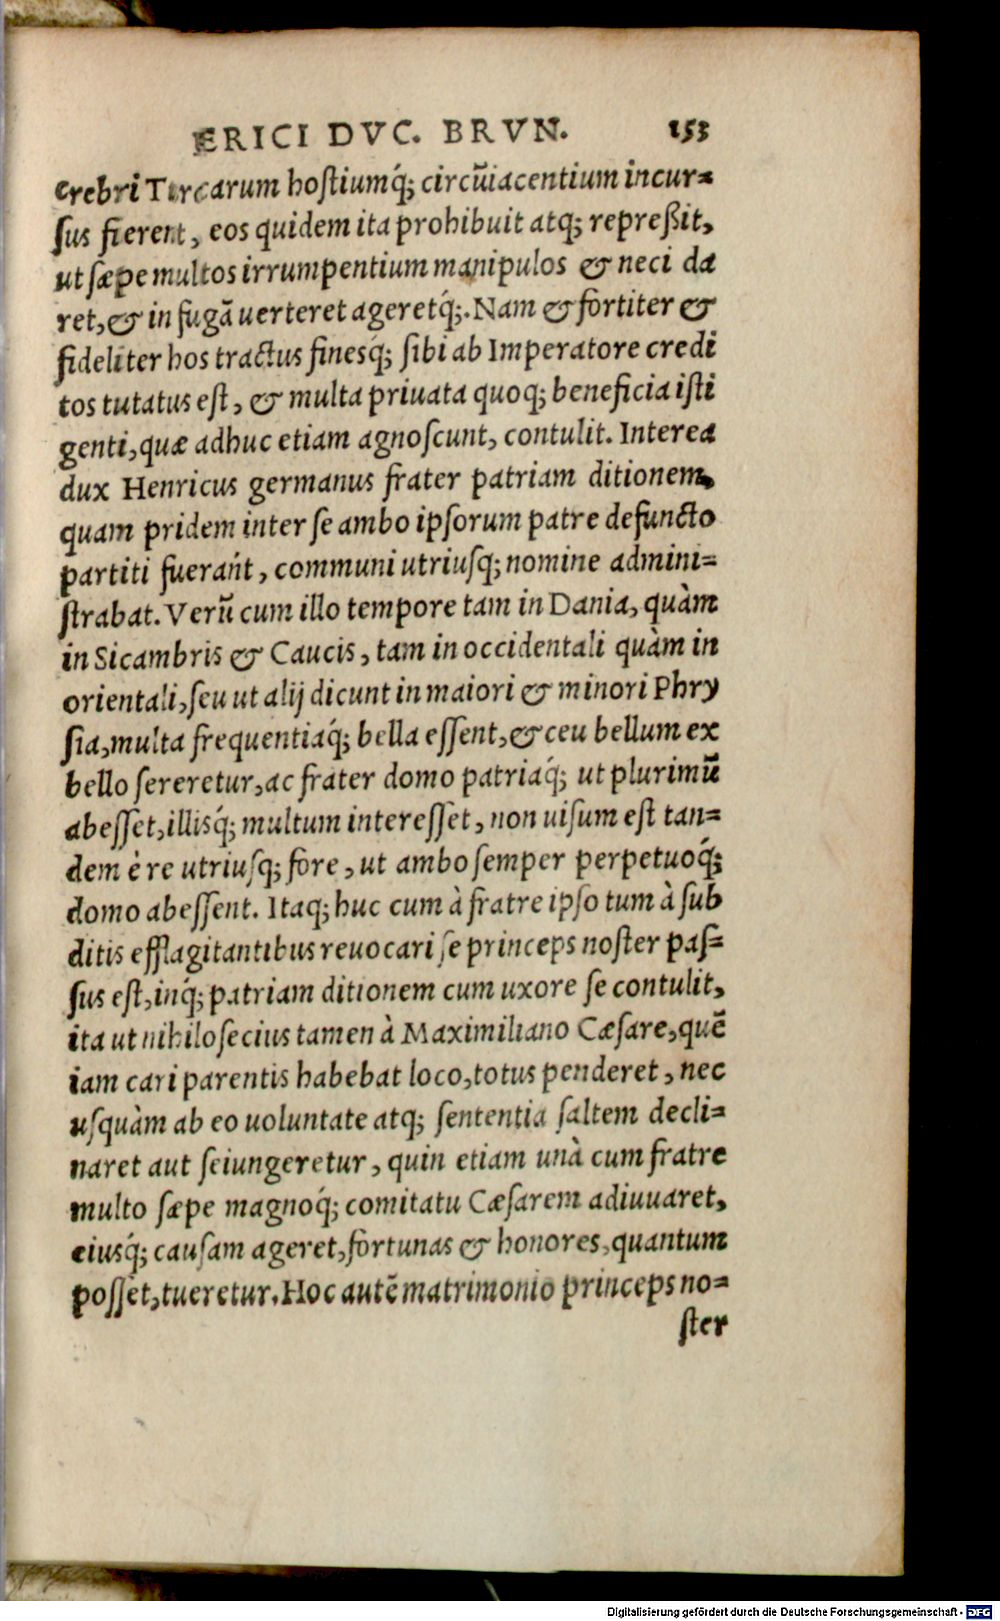 ERICI DVC. BRVN. 153
crebri Turcarum hoſtiumq́; circũiacentium incur⸗
ſus fierent, eos quidem ita prohibuit atq; repreßit,
ut ſæpe multos irrumpentium manipulos & neci da
ret, & in fugã uerteret ageretq́;. Nam & fortiter &
fideliter hos tractus finesq́; ſibi ab Imperatore credi
tos tutatus eſt, & multa priuata quoq; beneficia iſti
genti, quæ adhuc etiam agnoſcunt, contulit. Interea
dux Henricus germanus frater patriam ditionem,
quam pridem inter ſe ambo ipſorum patre defuncto
partiti fuerań́t, communi utriuſq; nomine admini⸗
ſtrabat. Verũ cum illo tempore tam in Dania, quàm
in Sicambris & Caucis, tam in occidentali quàm in
orientali, ſeu ut alij dicunt in maiori & minori Phry
ſia, multa frequentiaq́; bella eſſent, & ceu bellum ex
bello ſereretur, ac frater domo patriaq́; ut plurimũ
abeſſet, illisq́; multum intereſſet, non uiſum eſt tan⸗
dem è re utriuſq; fore, ut ambo ſemper perpetuoq́;
domo abeſſent. Itaq; huc cum à fratre ipſo tum à ſub
ditis efflagitantibus reuocari ſe princeps noſter paſ⸗
ſus eſt, inq́; patriam ditionem cum uxore ſe contulit,
ita ut nihiloſecius tamen à Maximiliano Cæſare, quẽ
iam cari parentis habebat loco, totus penderet, nec
uſquàm ab eo uoluntate atq; ſententia ſaltem decli⸗
naret aut ſeiungeretur, quin etiam unà cum fratre
multo ſæpe magnoq́; comitatu Cæſarem adiuuaret,
eiusq́; cauſam ageret, fortunas & honores, quantum
poſſet, tueretur. Hoc autẽ matrimonio princeps no⸗
ſter
Digitalisierung gefördert durch die Deutsche Forschungsgemeinschaft - DFG